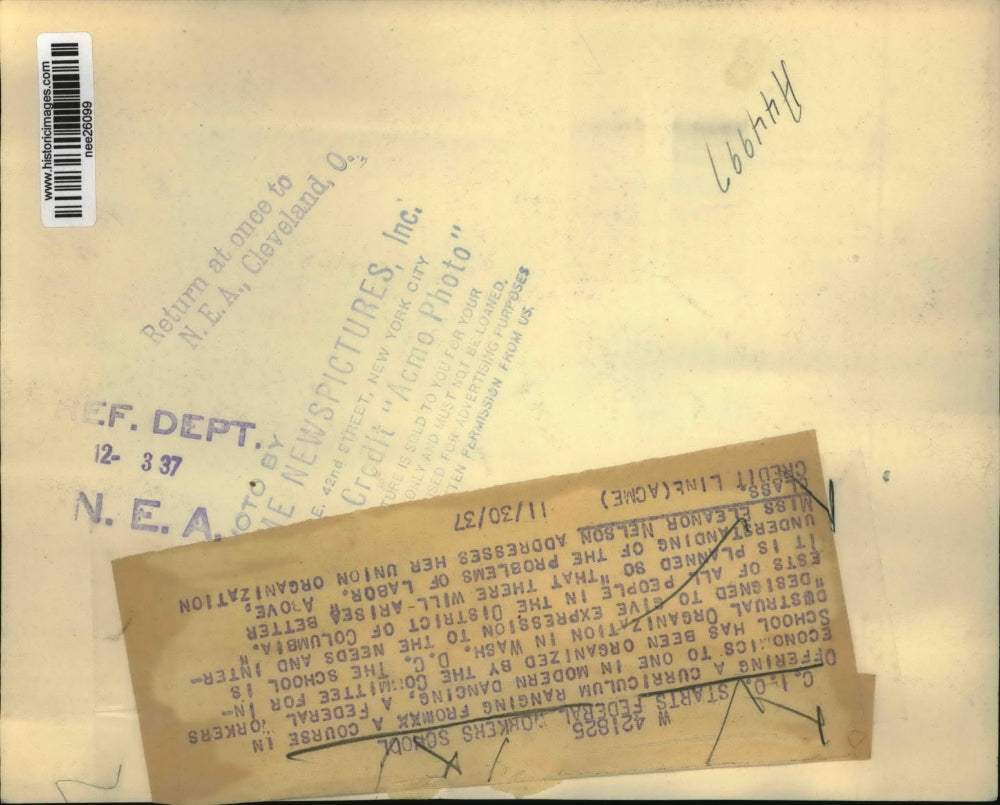 www.historicimages.com
nee26099
A44997
Return at once to
N. E. A., Cleveland, O.
EF. DEPT.
12- 3 37
N. E. A.
OTO BY
ME NEWSPICTURES, Inc.
E. 42nd STREET, NEW YORK CITY
Credit "Acme Photo"
TURE IS SOLD TO YOU FOR YOUR
ONLY AND MUST NOT BE LOANED,
USED FOR ADVERTISING PURPOSES
TEN PERMISSION FROM US.
W 421825
C.I.O. STARTS FEDERAL WORKERS SCHOOL
OFFERING A CURRICULUM RANGING FROMXX A COURSE IN
ECONOMICS TO ONE IN MODERN DANCING, A FEDERAL WORKERS
SCHOOL HAS BEEN ORGANIZED BY THE COMMITTEE FOR IN-
DUSTRUAL ORGANIZATION IN WASH. D.C. THE SCHOOL IS
"DESIGNED TO GIVE EXPRESSION TO THE NEEDS AND INTER-
ESTS OF ALL PEOPLE IN THE DISTRICT OF COLUMBIA".
IT IS PLANNED SO "THAT THERE WILL-ARISE A BETTER
UNDERSTANDING OF THE PROBLEMS OF LABOR. ABOVE,
MISS ELEANOR NELSON ADDRESSES HER UNION ORGANIZATION
CLASS.
CREDIT LINE(ACME) 11/30/37